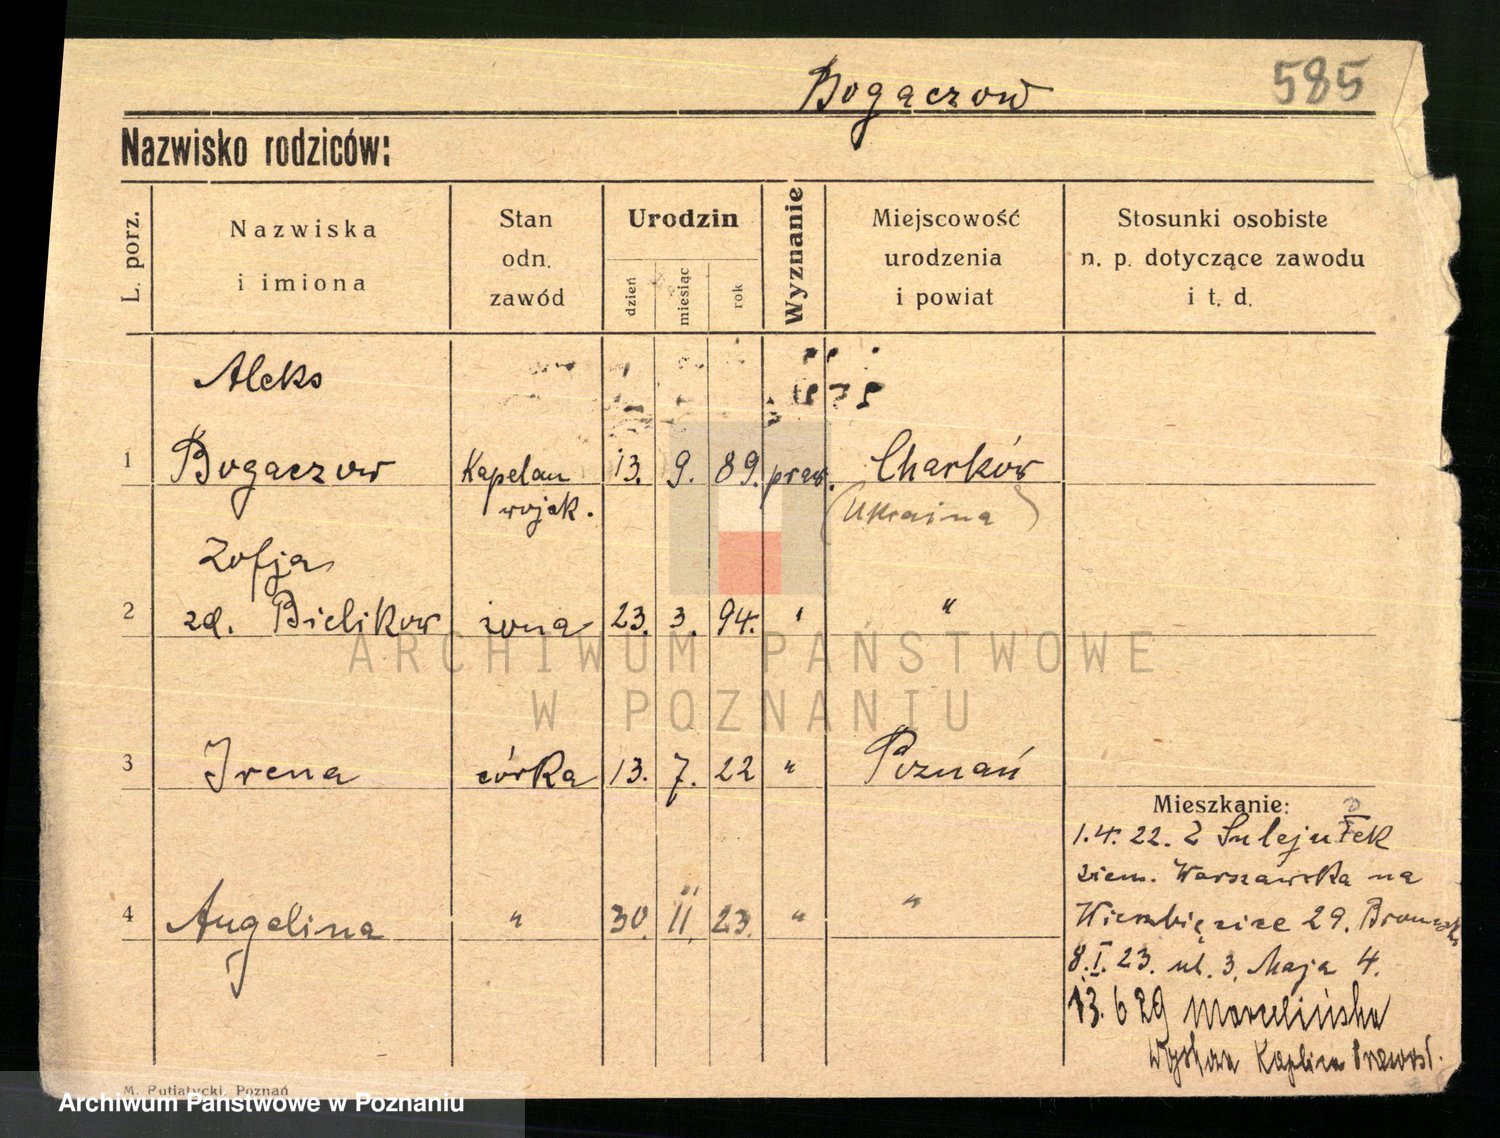 Bogaczow
585
Nazwisko rodziców:
L. porz.
Nazwiska
i imiona
Stan
odn.
zawód
Urodzin
dzień
miesiąc
rok
Wyznanie
Miejscowość
urodzenia
i powiat
Stosunki osobiste
n. p. dotyczące zawodu
i t. d.
Aleks
1 Bogaczow Kapelan 13. 9. 89. praw. Charków
wojsk. (Ukraina)
Zofja
2 zd. Bielikow żona 23. 3. 94. " "
3 Irena córka 13. 7. 22 " Poznań
Mieszkanie:
1.4.22. Z Sulejówek
ziem. Warszawska na
4 Angelina " 30. 11. 23. " "
Wierzbięcice 29.
8.I.23. ul. 3. Maja 4.
13.6 29 Marcelińska
M. Putiatycki, Poznań
ARCHIWUM PAŃSTWOWE
W POZNANIU
Archiwum Państwowe w Poznaniu